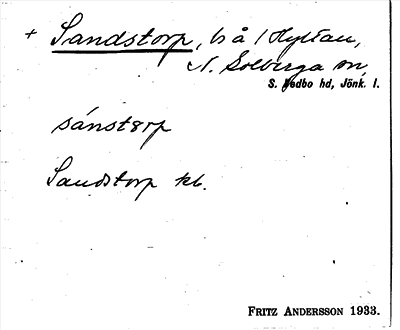 + Sandstorp, ls å /Hyltan,
N. Solberga sn,
S. Vedbo hd, Jönk. l.
sánstərp
Sandstorp kb.
FRITZ ANDERSSON 1933.